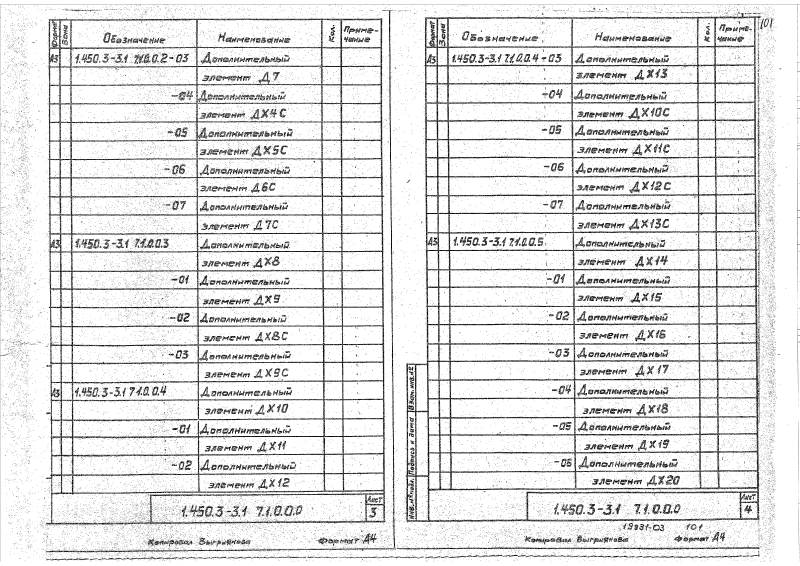 Формат Зона Обозначение Наименование Кол. Примечание
А3 1.450.3-3.1 7.1.0.0.2-03 Дополнительный
элемент Д7
-04 Дополнительный
элемент ДХ4С
-05 Дополнительный
элемент ДХ5С
-06 Дополнительный
элемент Д6С
-07 Дополнительный
элемент Д7С
А3 1.450.3-3.1 7.1.0.0.3 Дополнительный
элемент ДХ8
-01 Дополнительный
элемент ДХ9
-02 Дополнительный
элемент ДХ8С
-03 Дополнительный
элемент ДХ9С
А3 1.450.3-3.1 7.1.0.0.4 Дополнительный
элемент ДХ10
-01 Дополнительный
элемент ДХ11
-02 Дополнительный
элемент ДХ12
1.450.3-3.1 7.1.0.0.0 Лист
3
Копировал Выгриянова Формат А4
101
Формат Зона Обозначение Наименование Кол. Примечание
А3 1.450.3-3.1 7.1.0.0.4-03 Дополнительный
элемент ДХ13
-04 Дополнительный
элемент ДХ10С
-05 Дополнительный
элемент ДХ11С
-06 Дополнительный
элемент ДХ12С
-07 Дополнительный
элемент ДХ13С
А3 1.450.3-3.1 7.1.0.0.5 Дополнительный
элемент ДХ14
-01 Дополнительный
элемент ДХ15
-02 Дополнительный
элемент ДХ16
-03 Дополнительный
элемент ДХ17
-04 Дополнительный
элемент ДХ18
-05 Дополнительный
элемент ДХ19
-06 Дополнительный
элемент ДХ20
Инв.№подл. Подпись и дата Взам.инв.№
1.450.3-3.1 7.1.0.0.0 Лист
4
19931-03 101
Копировал Выгриянова Формат А4